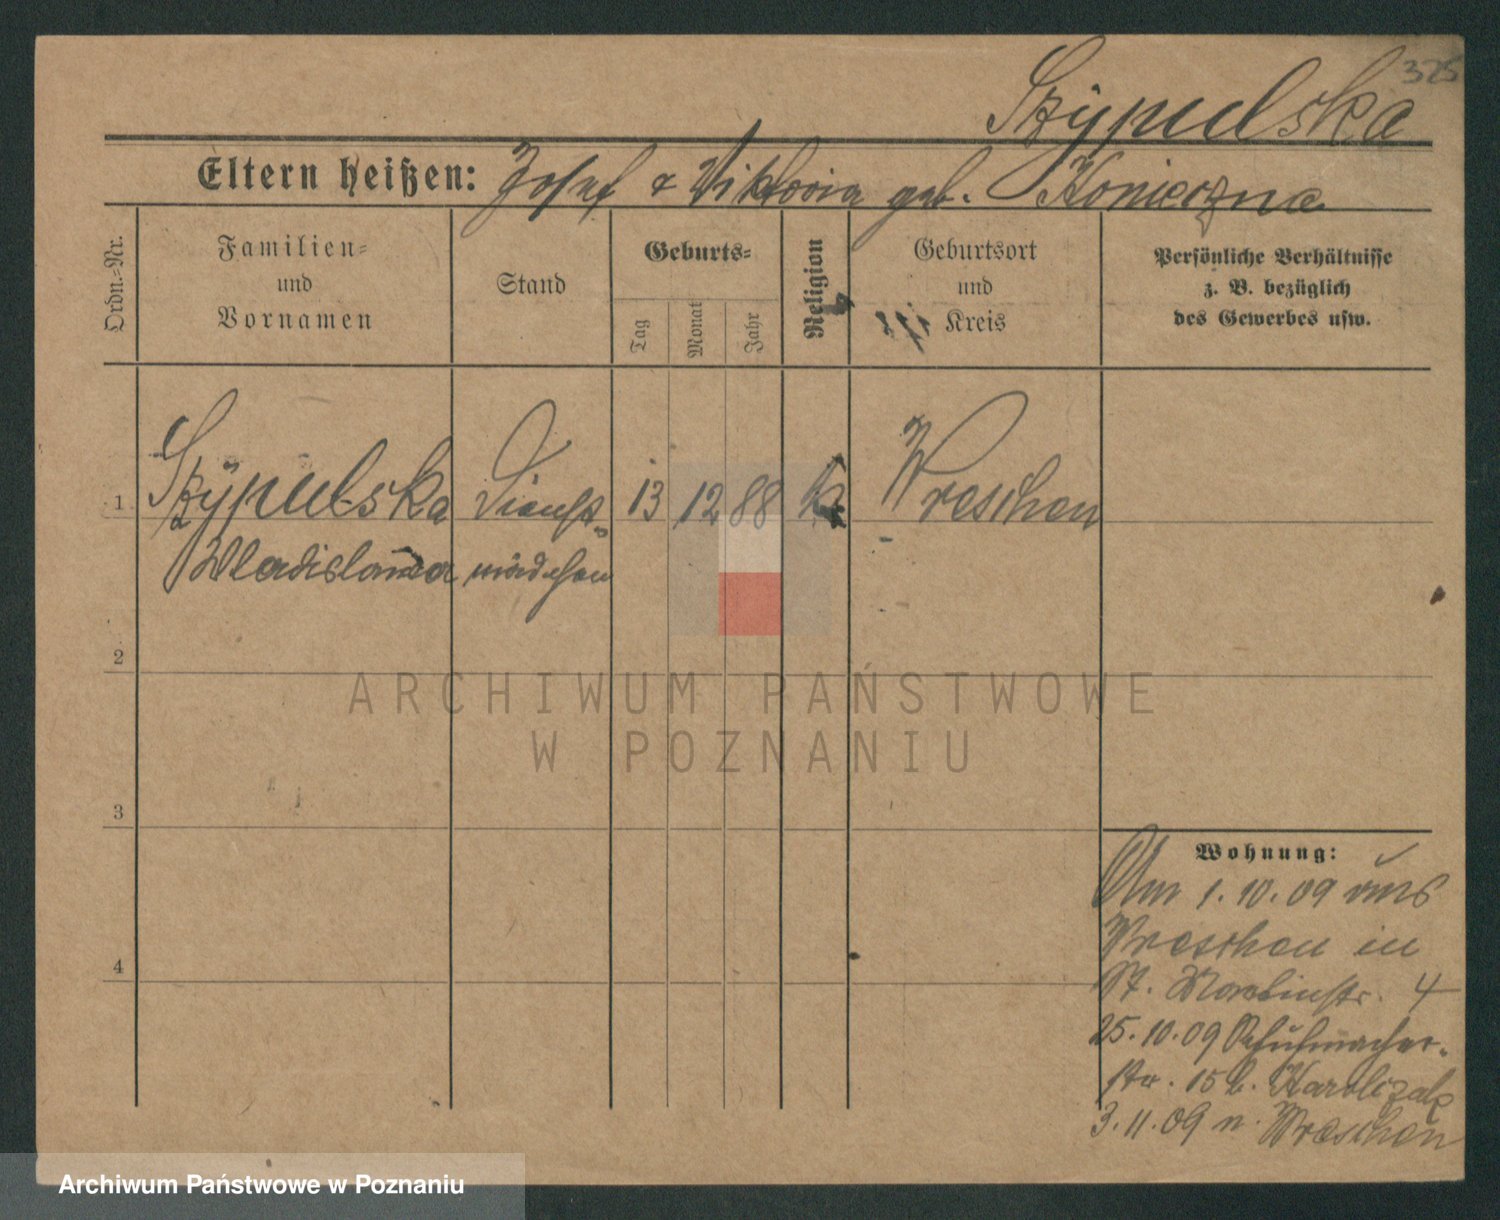 325
Szÿpulska
Eltern heißen: Josef & Viktoria geb. Konieczna
Ordn.-Nr.
Familien-
und
Vornamen
Stand
Geburts-
Tag
Monat
Jahr
Religion
Geburtsort
und
Kreis
Persönliche Verhältnisse
z. B. bezüglich
des Gewerbes usw.
1 Szÿpulska Dienst- 13 12 88 k Wreschen
Wladislawa mädchen
2
3
4
Wohnung:
Am 1.10.09 aus
Wreschen in
St. Martinstr. 4
25.10.09 Schuhmacher-
str. 15 b. Karolczak
3.11.09 n. Wreschen
ARCHIWUM PAŃSTWOWE
W POZNANIU
Archiwum Państwowe w Poznaniu